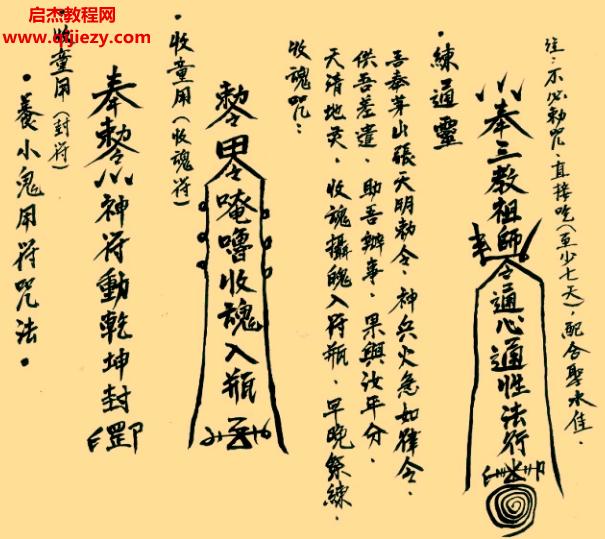 启杰教程网
www.qijiezy.com
注：不必勅咒，直接吃(至少七天)，配合聖水佳。
奉三教祖師令通心通性法行
·練通靈
吾奉茅山張天明勅令，神兵火急如律令，
供吾差遣，助吾辦事，果與汝年分，
天清地灵，收魂攝魄入符瓶，早晚祭練，
收魂咒：
唵嚕收魂入瓶
·收童用(收魂符)
奉勅令神符動乾坤封
·收童用(封符)
·養小鬼用符咒法。